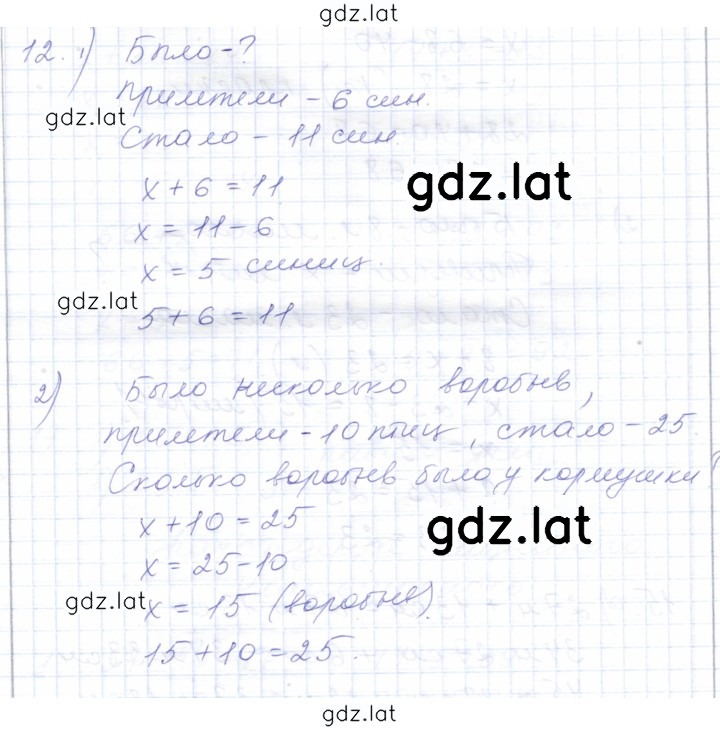 gdz.lat
12. 1) Было - ?
прилетели - 6 син.
gdz.lat
Стало - 11 син.
x + 6 = 11
gdz.lat
x = 11 - 6
x = 5 синиц.
gdz.lat
5 + 6 = 11
2) Было несколько воробьев,
прилетели - 10 птиц, стало - 25.
Сколько воробьев было у кормушки?
x + 10 = 25
gdz.lat
x = 25 - 10
gdz.lat
x = 15 (воробьев).
15 + 10 = 25.
gdz.lat